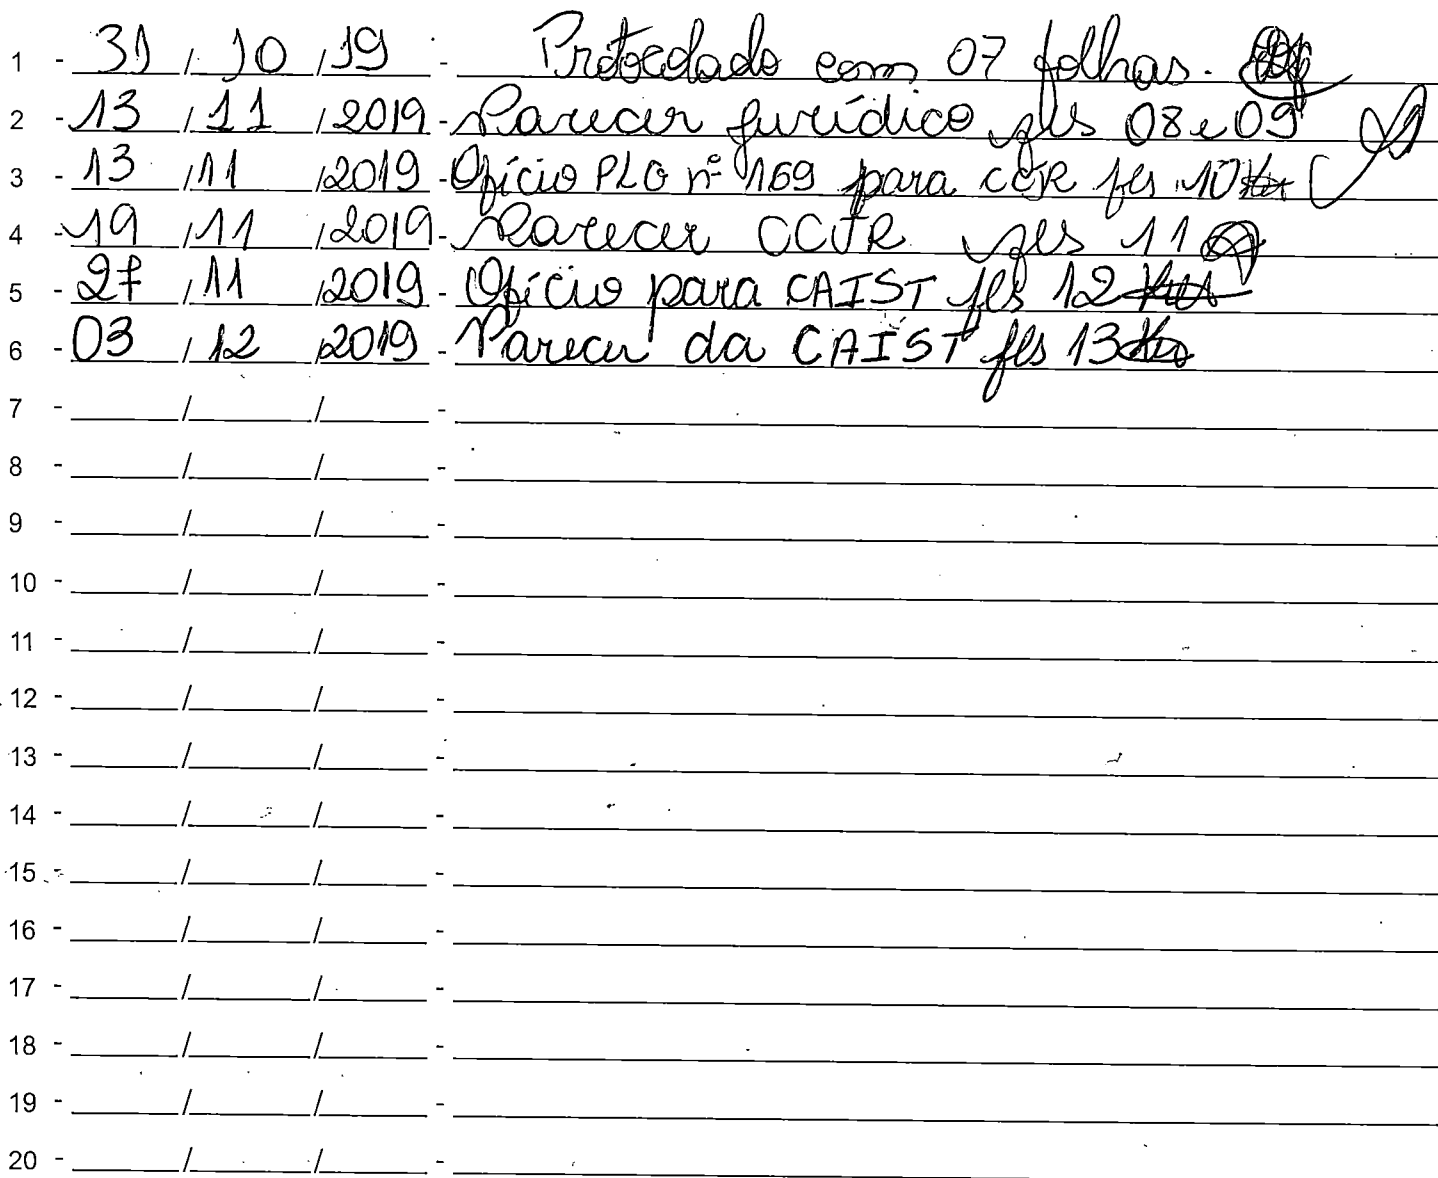 1 - 31 / 10 / 19 - Protocolado com 07 folhas.
2 - 13 / 11 / 2019 - Parecer Jurídico fls 08 e 09
3 - 13 / 11 / 2019 - Ofício PLO nº 169 para CCJR fls 10
4 - 19 / 11 / 2019 - Parecer CCJR fls 11
5 - 27 / 11 / 2019 - Ofício para CAIST fls 12
6 - 03 / 12 / 2019 - Parecer da CAIST fls 13
7 - ____/____/____ - ____
8 - ____/____/____ - ____
9 - ____/____/____ - ____
10 - ____/____/____ - ____
11 - ____/____/____ - ____
12 - ____/____/____ - ____
13 - ____/____/____ - ____
14 - ____/____/____ - ____
15 - ____/____/____ - ____
16 - ____/____/____ - ____
17 - ____/____/____ - ____
18 - ____/____/____ - ____
19 - ____/____/____ - ____
20 - ____/____/____ - ____